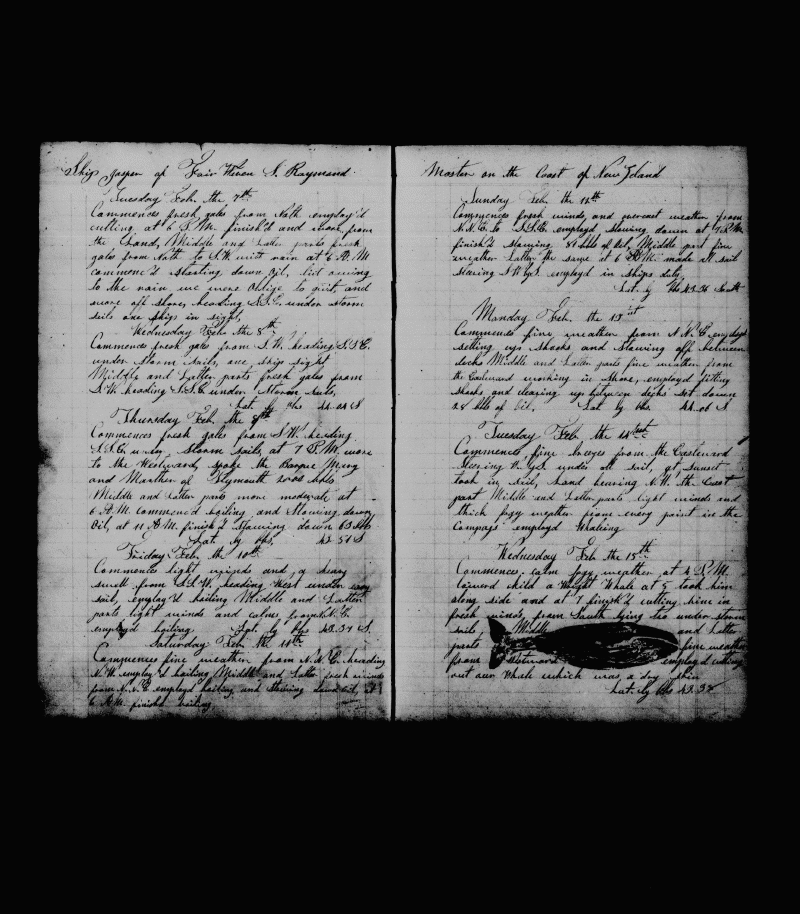 Ship Jasper of Fair Haven S. Raymond
Tuesday Feb. the 7th
Commences fresh gales from North employ'd
cutting, at 6 P.M. finish'd and wore from
the Land, Middle and Latter parts fresh
gales from North to S.W. with rain at 6 A.M
commenc'd starting down Oil, but owing
to the rain we were oblige to quit, and
wore off shore, heading S.S.E. under storm
sails one ships in sight,
Wednesday Feb the 8th
Commences fresh gales from S.W. heading S.S.E.
under storm sails, one ship sight
Middle and Latter parts fresh gales from
S.W. heading S.S.E. under Storm Sails,
Lat. by Obs. 44.04 S
Thursday Feb. the 9th
Commences fresh gales from S.W. heading
S.S.E. under Storm sails, at 7 P.M. wore
to the Westward, spoke the Barque Mary
and Marther of Plymouth bbls
Middle and Latter parts more moderate at
6 A.M. commenc'd boiling and Stowing down
Oil, at 11 A.M. finish'd Stowing down 63 bbls
Lat. by Obs. 43.51 S
Friday Feb. the 10th
Commences light winds and a heavy
swell from S.S.W. heading West under easy
sail, employ'd boiling Middle and Latter
parts light winds and calms from N.E.
employ'd boiling. Lat. by Obs 43.37 S.
Saturday Feb. the 11th
Commences fine weather from N.N.E. heading
N.W. employ'd boiling Middle and Latter fresh winds
from N.N.E employd boiling, and Stowing down oil,
6 A.M. finishd boiling,
Master on the Coast of New Zeland
Sunday Feb. the 12th
Commences fresh winds and overcast weather from
N.N.E. to S.S.E. employd Stowing down at 7 P.M.
finish'd Stowing 81 bbls of Oil, Middle part fine
weather Latter the same at 6 A.M. made all sail
Steering employd in ships duty,
Lat. by Obs 43.36 South
Monday Feb. the 13th
Commences fine weather from N.N.E. employd
setting up Shooks and Stowing off between
decks Middle and Latter parts fine weather from
the Eastward working in Shore, employd fitting
Shooks and clearing up between decks Set down
28 bbls of Oil. Lat by Obs. 44.06 S
Tuesday Feb. the 14th
Commences, fine breezes from the Eastward
Steering under all sail, at Sunset
took in Sail, Land bearing N.W. the Coast
part Middle and Latter parts light winds and
thick fogy weather from every point in the
Compass employd Whaleing
Wednesday Feb the 15th
Commences calm fogy weather at 4 P.M.
lowerd child a Wright Whale at 5 took him
along side and at 7 finish'd cutting him in
fresh winds from South lying too under storm
sails, Middle and Latter
parts fine weather
from Eastward employd cutting
out our Whale which was a dry skin
Lat. by Obs 43.38